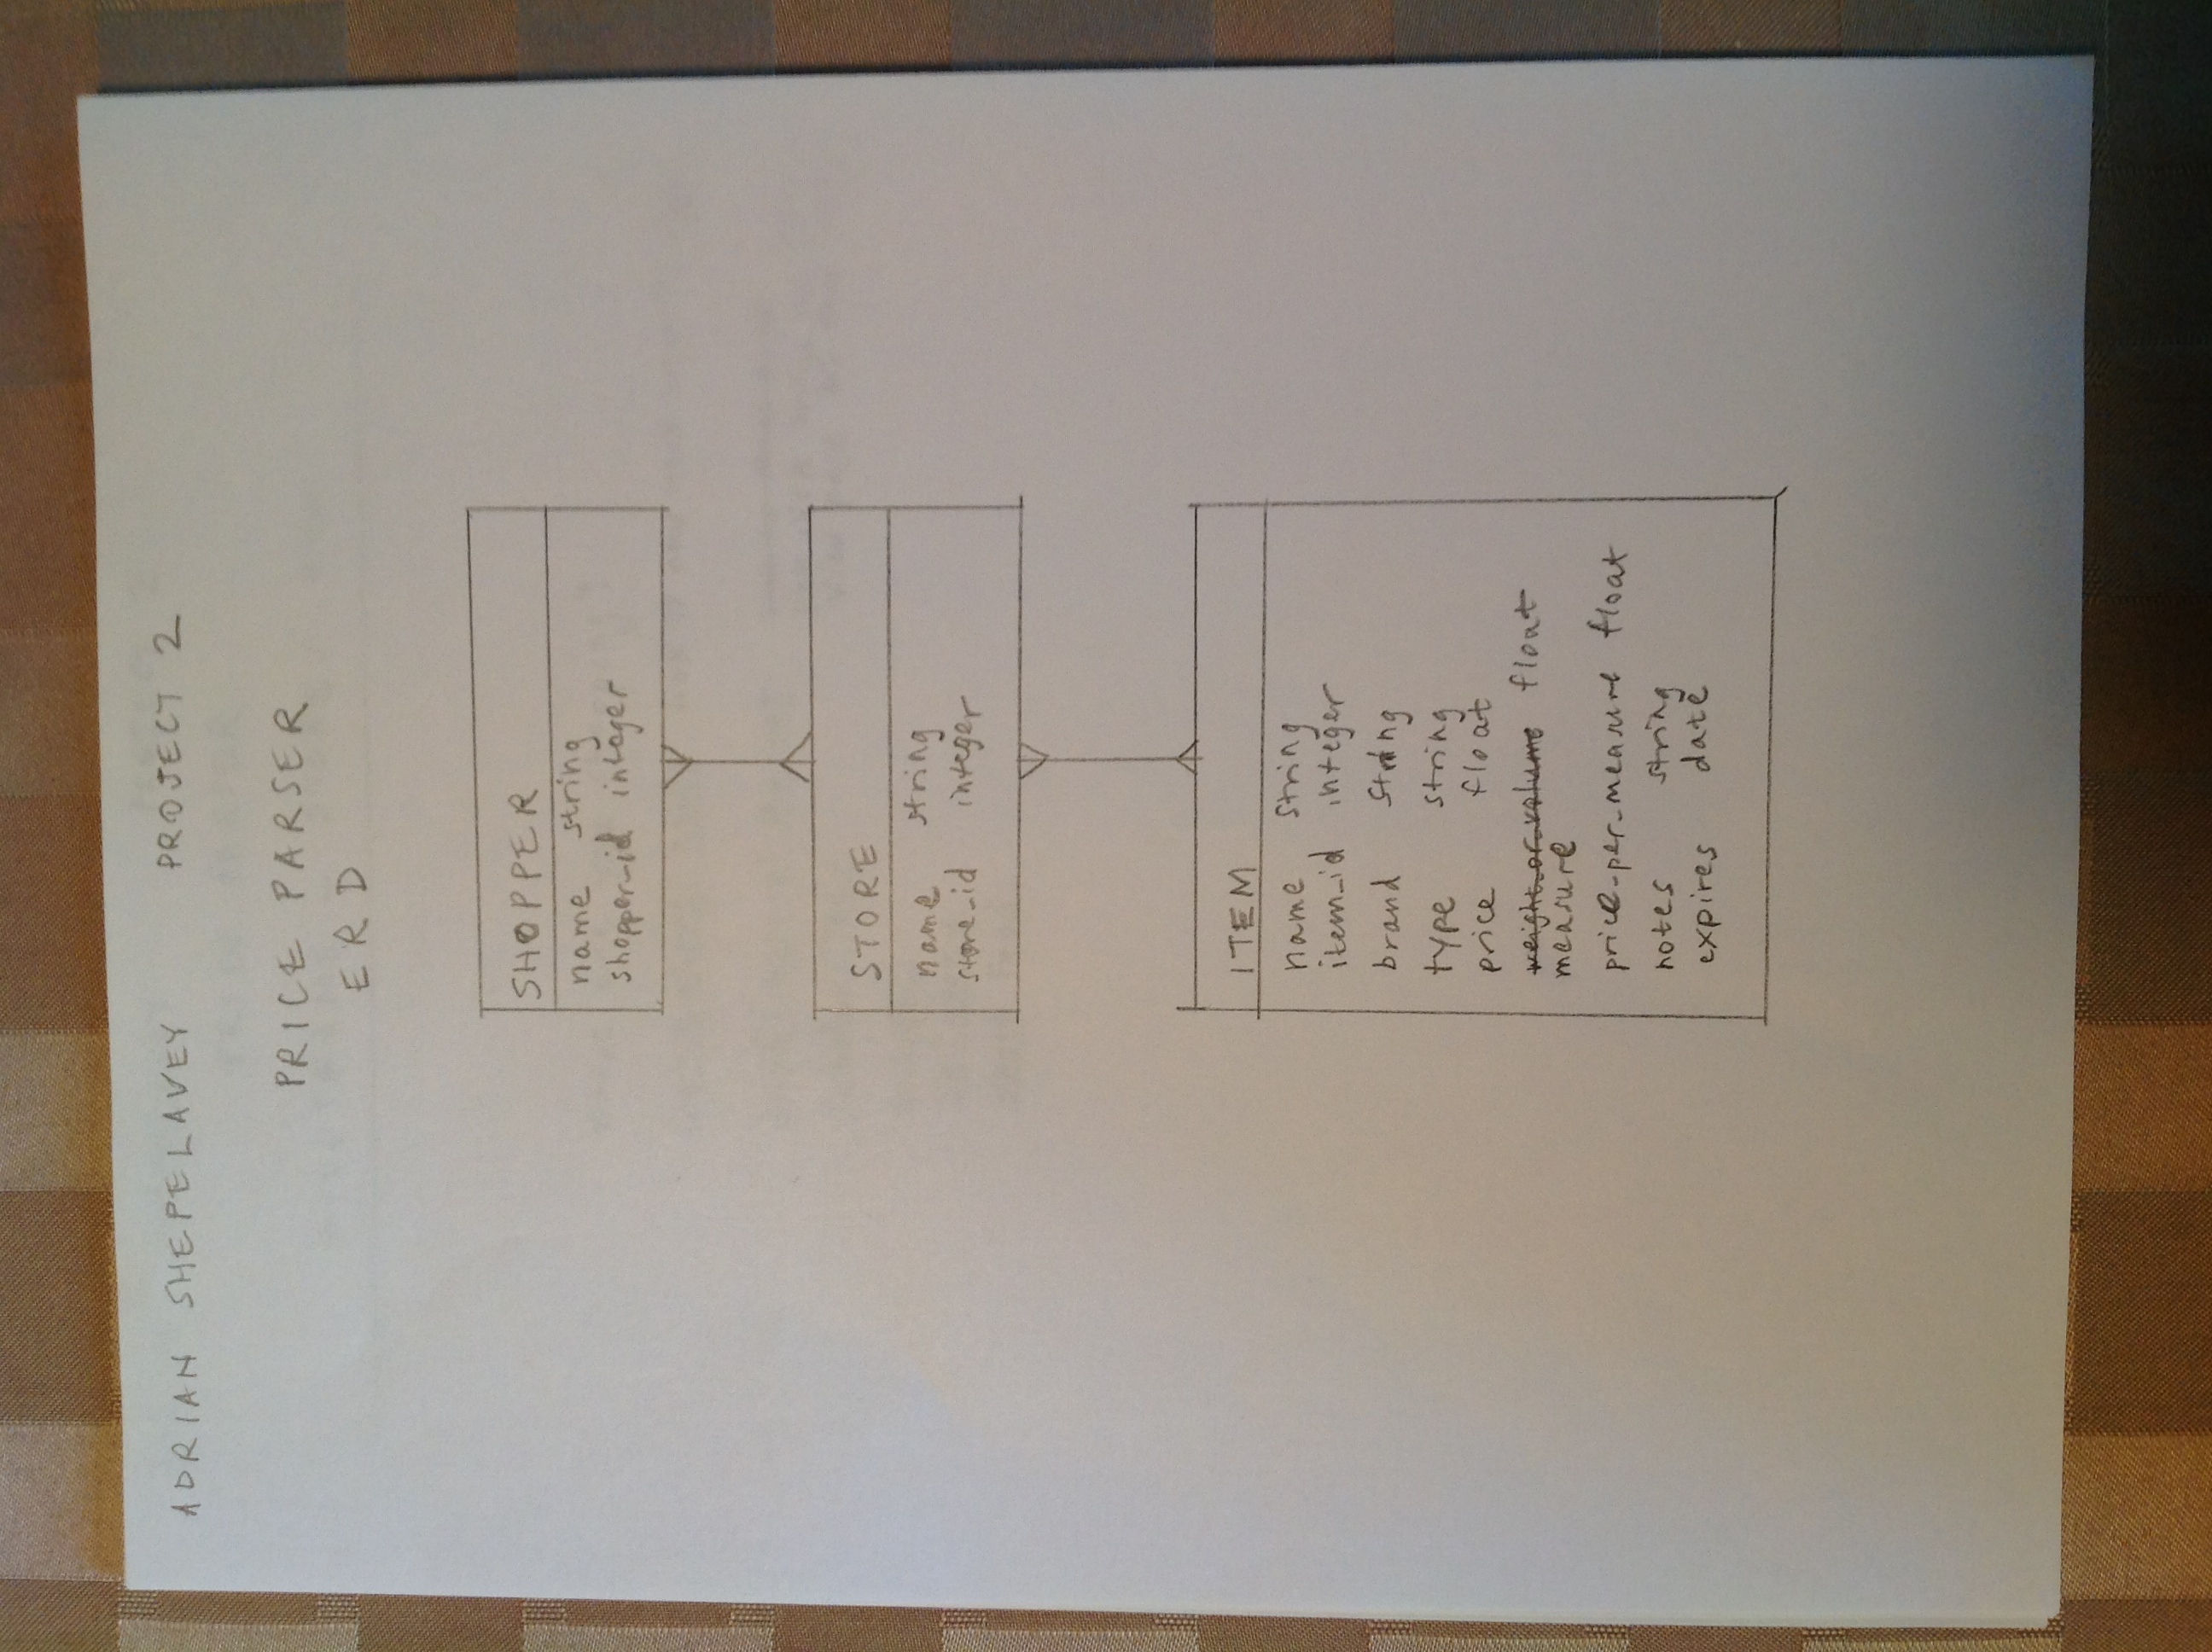 ADRIAN SHEPELAVEY PROJECT 2
PRICE PARSER
ERD
SHOPPER
name string
shopper_id integer
STORE
name string
store_id integer
ITEM
name string
item_id integer
brand string
type string
price float
weight_or_volume float
measure
price_per_measure float
notes string
expires date